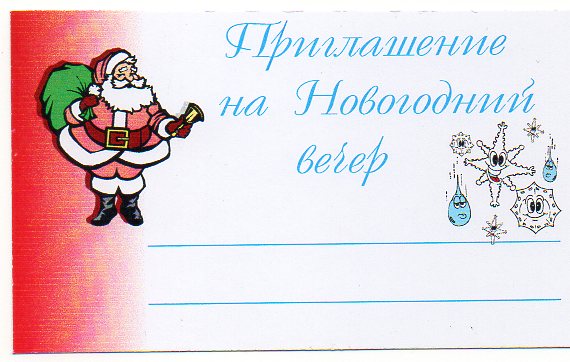 Приглашение
на Новогодний
вечер